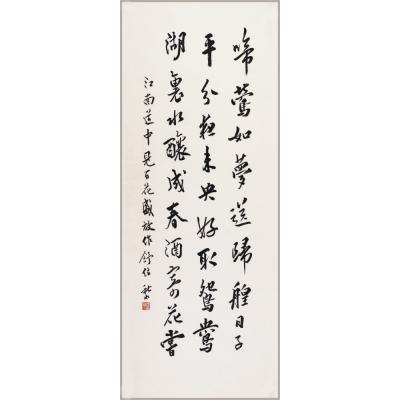 啼鶯如夢送歸艎日子
平分夜未央好取鴛鴦
湖裏水釀成春酒寄花嘗
江南道中見百花盛放作